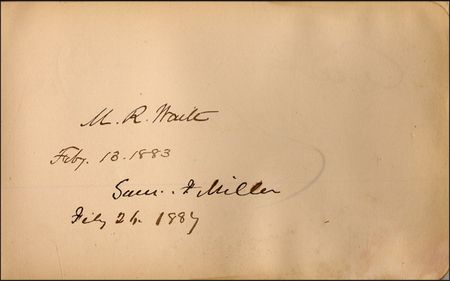 M. R. Waite
Feby. 13. 1883
Sam. F Miller
Feby 26. 1887